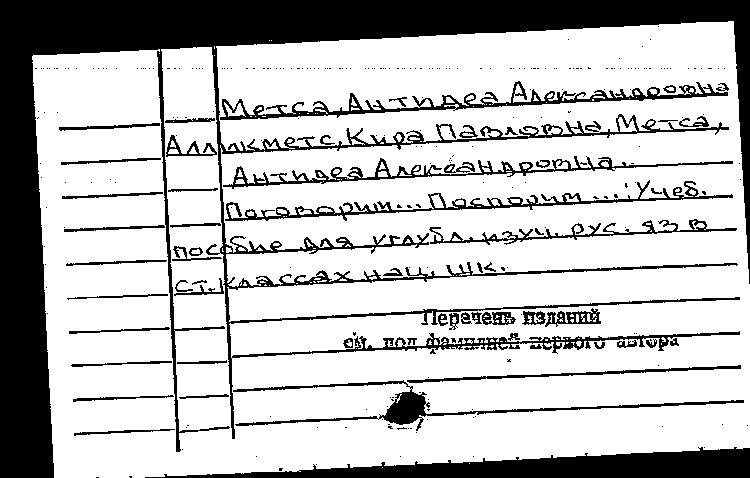 Метса, Антидеа Александровна
Алликметс, Кира Павловна, Метса,
Антидеа Александровна.
Поговорим... Поспорим...: Учеб.
пособие для углубл. изуч. рус. яз в
ст. классах нац. шк.
Перечень изданий
см. под фамилией первого автора